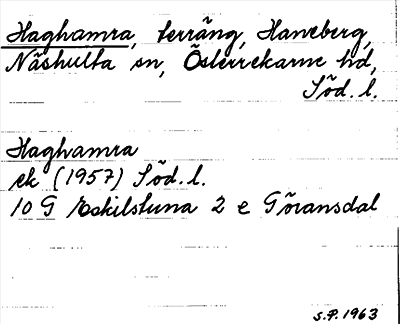 Haghamra, terräng, Haneberg,
Näshulta sn, Österrekarne hd,
Söd. l.
Haghamra
ek (1957) Söd. l.
10 G Eskilstuna 2 e Göransdal
S.P. 1963